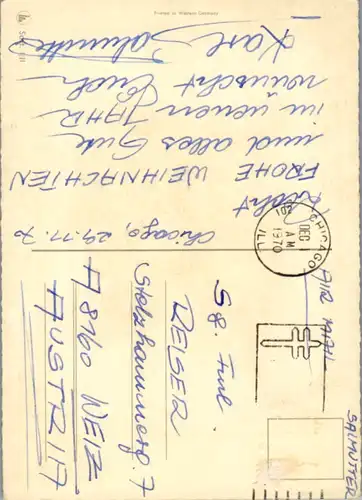 Chicago, 29.11.70
FROHE WEIHNACHTEN
und alles Gute
im neuen JAHR
wünscht Euch
Karl
Printed in Western Germany
CHICAGO
DEC 1
AM
1970
ILL
AIR MAIL
Sg. Fml.
REISER
A 8160 WEIZ
AUSTRIA